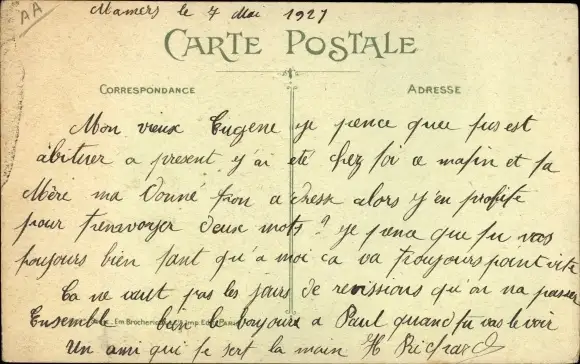 AA
Mamers le 7 Mai 1927
CARTE POSTALE
CORRESPONDANCE
ADRESSE
Mon vieux Eugene je pence quee tus est
abituer a present y'ai eté chez toi ce matin et ta
Mère ma donné ton adresse alors j'en profite
pour t'envoyer deux mots? je pence que tu vas
toujours bien tant qu'a moi ca va toujours pour vite
Ca ne vaut pas les jours de revisions qu'on na passer
Ensemble bien le bonjour a Paul quand tu vas le voir
Un ami qui te sert la main H Richard